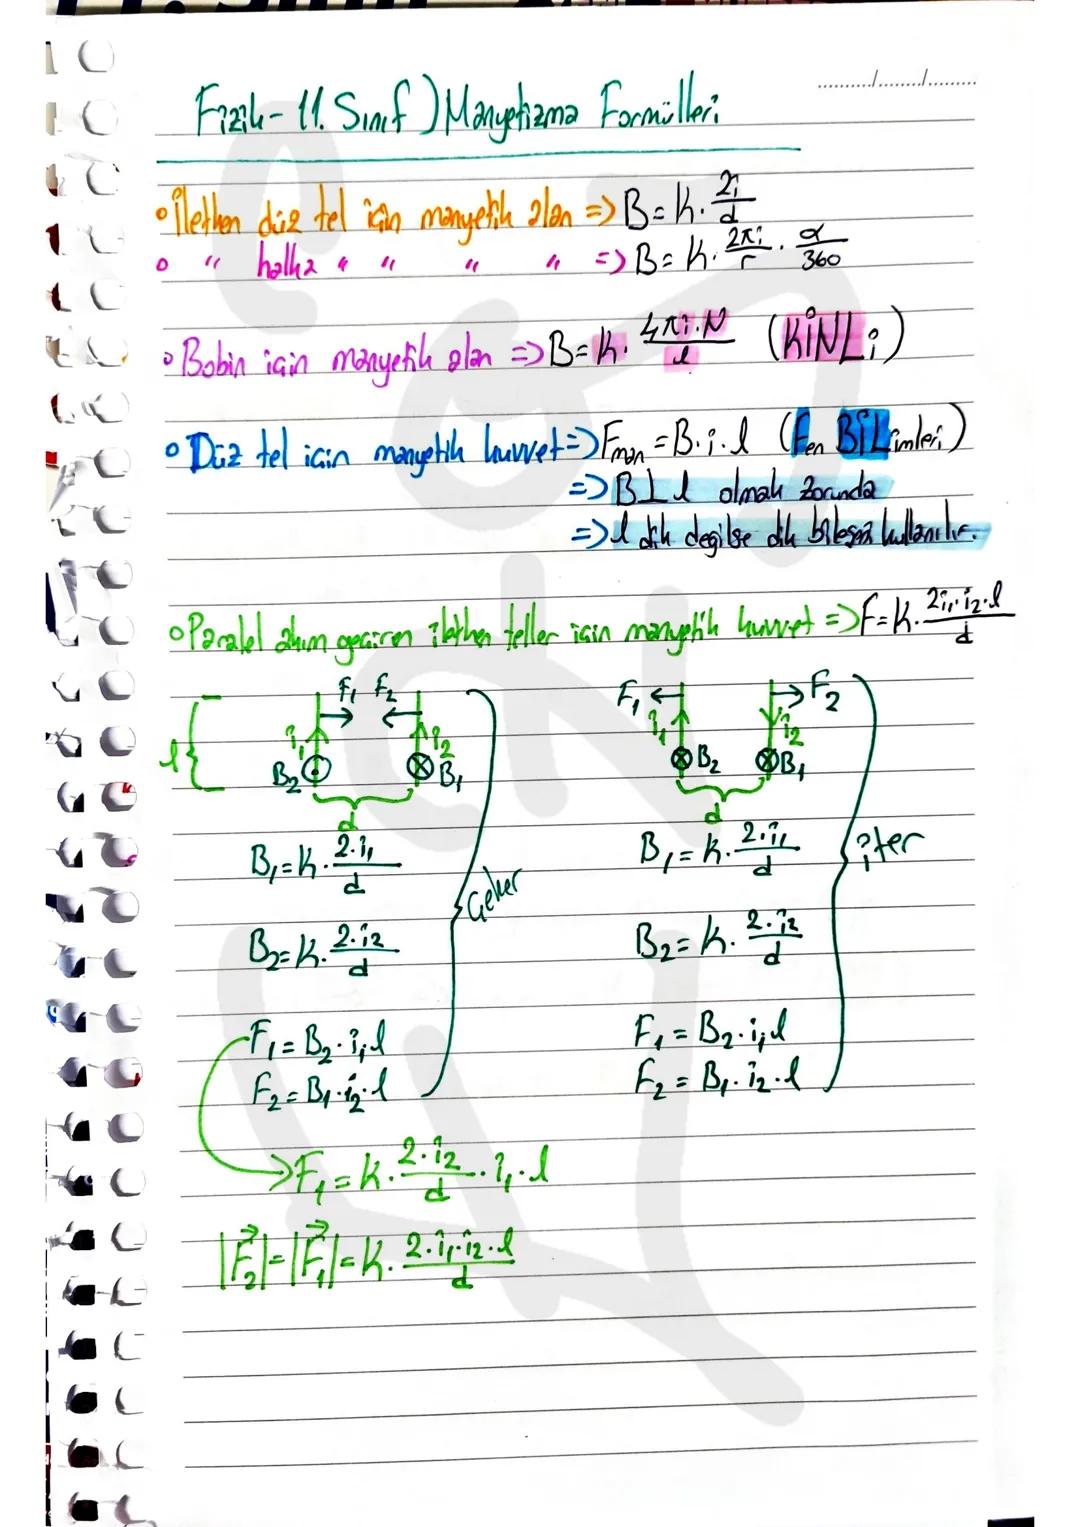 Fizik - 11. Sınıf ) Manyetizma Formülleri
........../........./..........
• İletken düz tel için manyetik alan => B = K. 2i/d
• " halka " " " " => B = K. 2πi/r . α/360
• Bobin için manyetik alan => B = K. 4πi.N/l (KİNLi)
• Düz tel için manyetik kuvvet => Fman = B.i.l (Fen BİLimleri)
=> B⊥l olmak zorunda
=> l dik değilse dik bileşen kullanılır.
• Paralel akım geçiren iletken teller için manyetik kuvvet => F = K. 2i₁.i₂.l/d
F₁ F₂ F₁ F₂
l i₁ i₂ i₁ i₂
B₂ ⊙ ⊗ B₁ ⊗ B₂ ⊗ B₁
d d
B₁ = K. 2.i₁/d B₁ = K. 2.i₁/d
Çeker iter
B₂ = K. 2.i₂/d B₂ = K. 2.i₂/d
F₁ = B₂.i₁.l F₁ = B₂.i₁.l
F₂ = B₁.i₂.l F₂ = B₁.i₂.l
→ F₁ = K. 2.i₂/d . i₁.l
|F⃗₂| = |F⃗₁| = K. 2.i₁.i₂.l/d